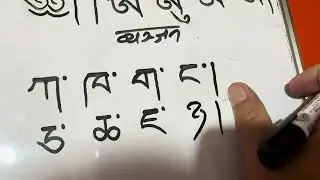 व्यञ्जन
ཀ་ ཁ་ ག་ ང་།
ཅ་ ཆ་ ཇ་ ཉ།